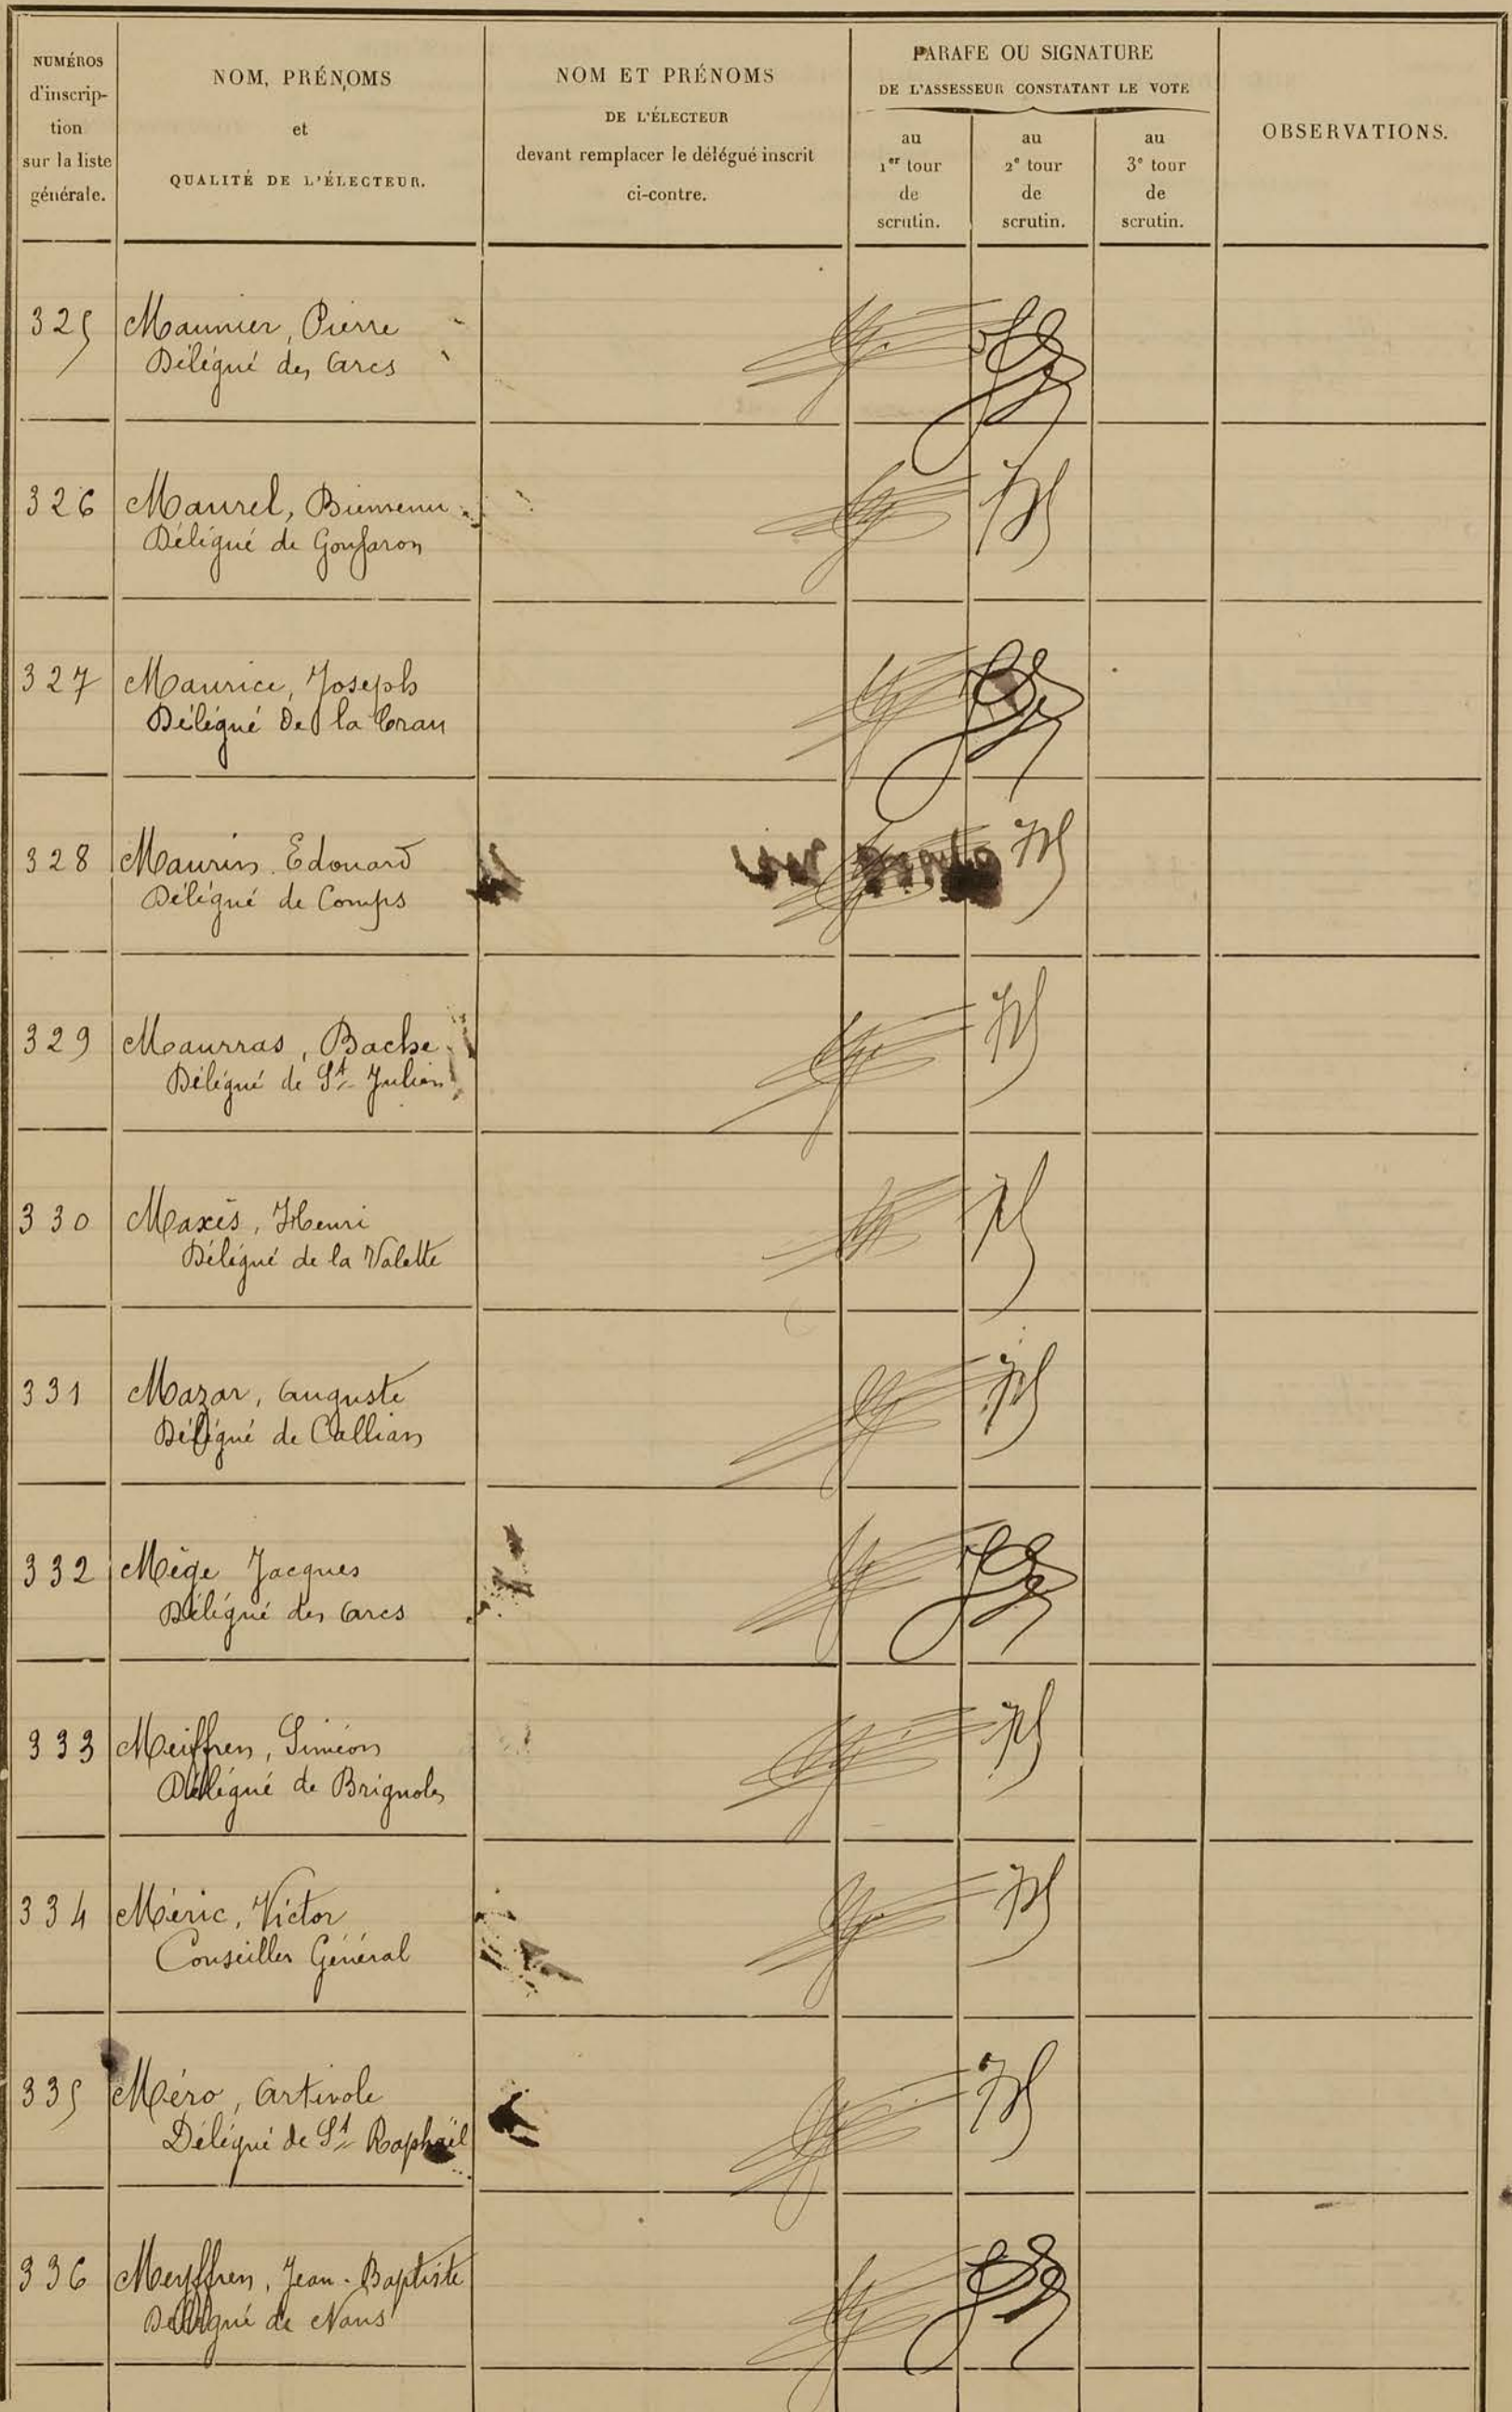 NUMÉROS
d'inscrip-
tion
sur la liste
générale.
NOM, PRÉNOMS
et
QUALITÉ DE L'ÉLECTEUR.
NOM ET PRÉNOMS
DE L'ÉLECTEUR
devant remplacer le délégué inscrit
ci-contre.
PARAFE OU SIGNATURE
DE L'ASSESSEUR CONSTATANT LE VOTE
au
1er tour
de
scrutin.
au
2e tour
de
scrutin.
au
3e tour
de
scrutin.
OBSERVATIONS.
325 Maunier, Pierre
Délégué des Arcs
326 Maurel, Bienvenu
Délégué de Gonfaron
327 Maurice, Joseph
Délégué De la Crau
328 Maurin Edouard
Délégué de Comps
329 Maurras, Bache
Délégué de St Julien
330 Maxès, Henri
Délégué de la Valette
331 Mazar, Auguste
Délégué de Callian
332 Mège Jacques
Délégué des Arcs
333 Meiffren, Siméon
Délégué de Brignoles
334 Méric, Victor
Conseiller Général
335 Méro,
Délégué de St Raphaël
336 Meyffren, Jean-Baptiste
Délégué de Nans